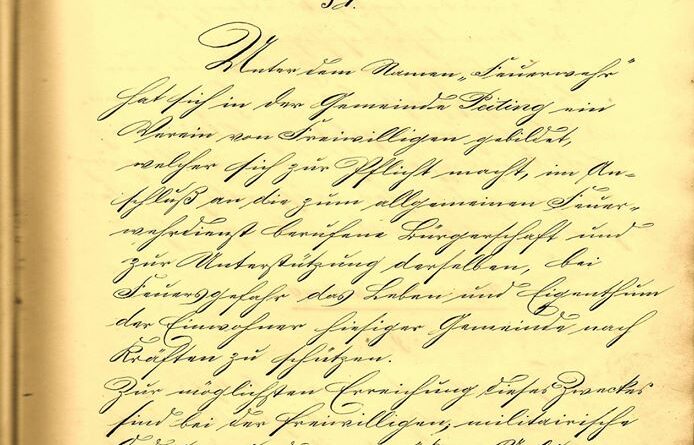 §1.
Unter dem Namen „Feuerwehr"
hat sich in der Gemeinde Peiting ein
Verein von Freiwilligen gebildet,
welcher sich zur Pflicht macht, im An-
schluß an die zum allgemeinen Feuer-
wehrdienst berufene Bürgerschaft und
zur Unterstützung derselben, bei
Feuersgefahr das Leben und Eigenthum
der Einwohner hiesiger Gemeinde nach
Kräften zu schützen.
Zur möglichsten Erreichung dieses Zweckes
sind bei der freiwilligen, militairische